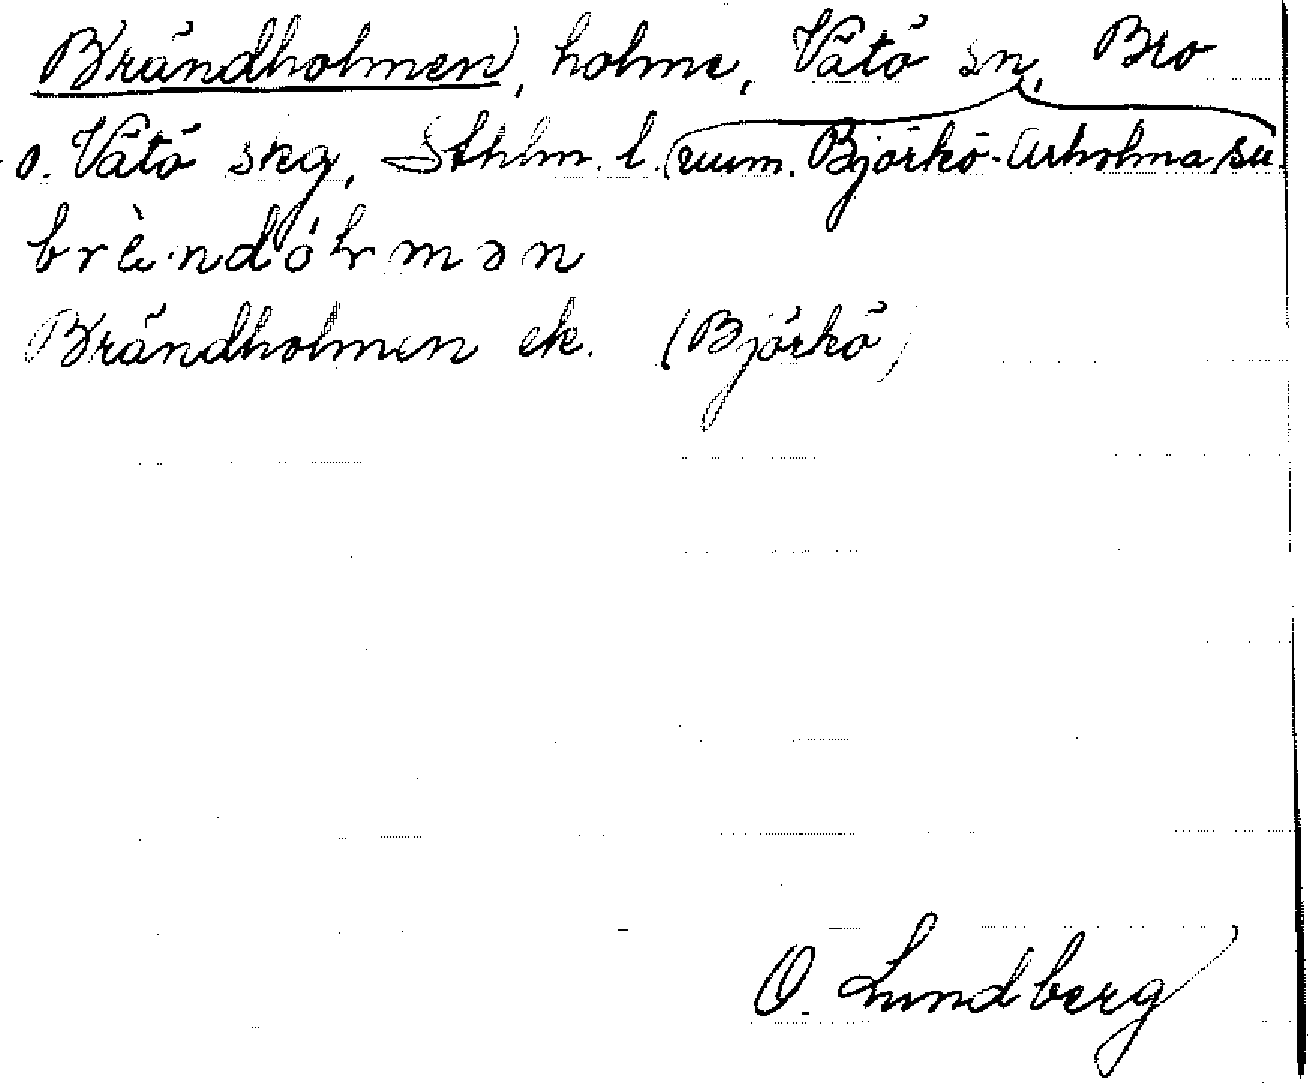 Brändholmen, holme, Vätö sn, Bro
o. Vätö skg, Sthlm. l. (num. Björkö-Arholma sn)
brè·ndόhrmən
Brändholmen ek. (Björkö)
O. Lundberg